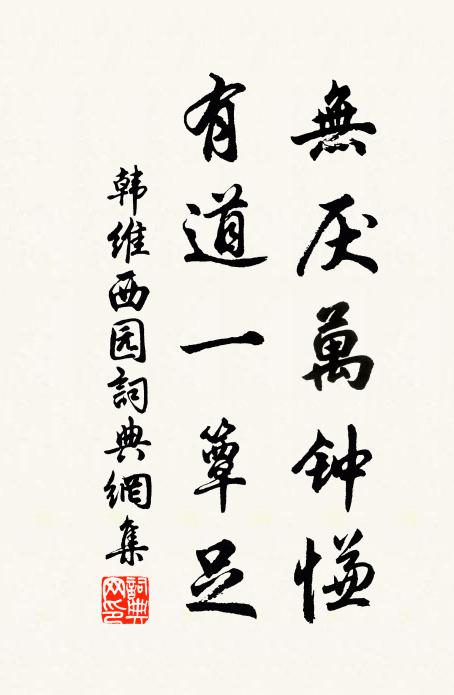 無厌萬钟慊
有道一簟足
韩维西园詞典網集
詞典網印